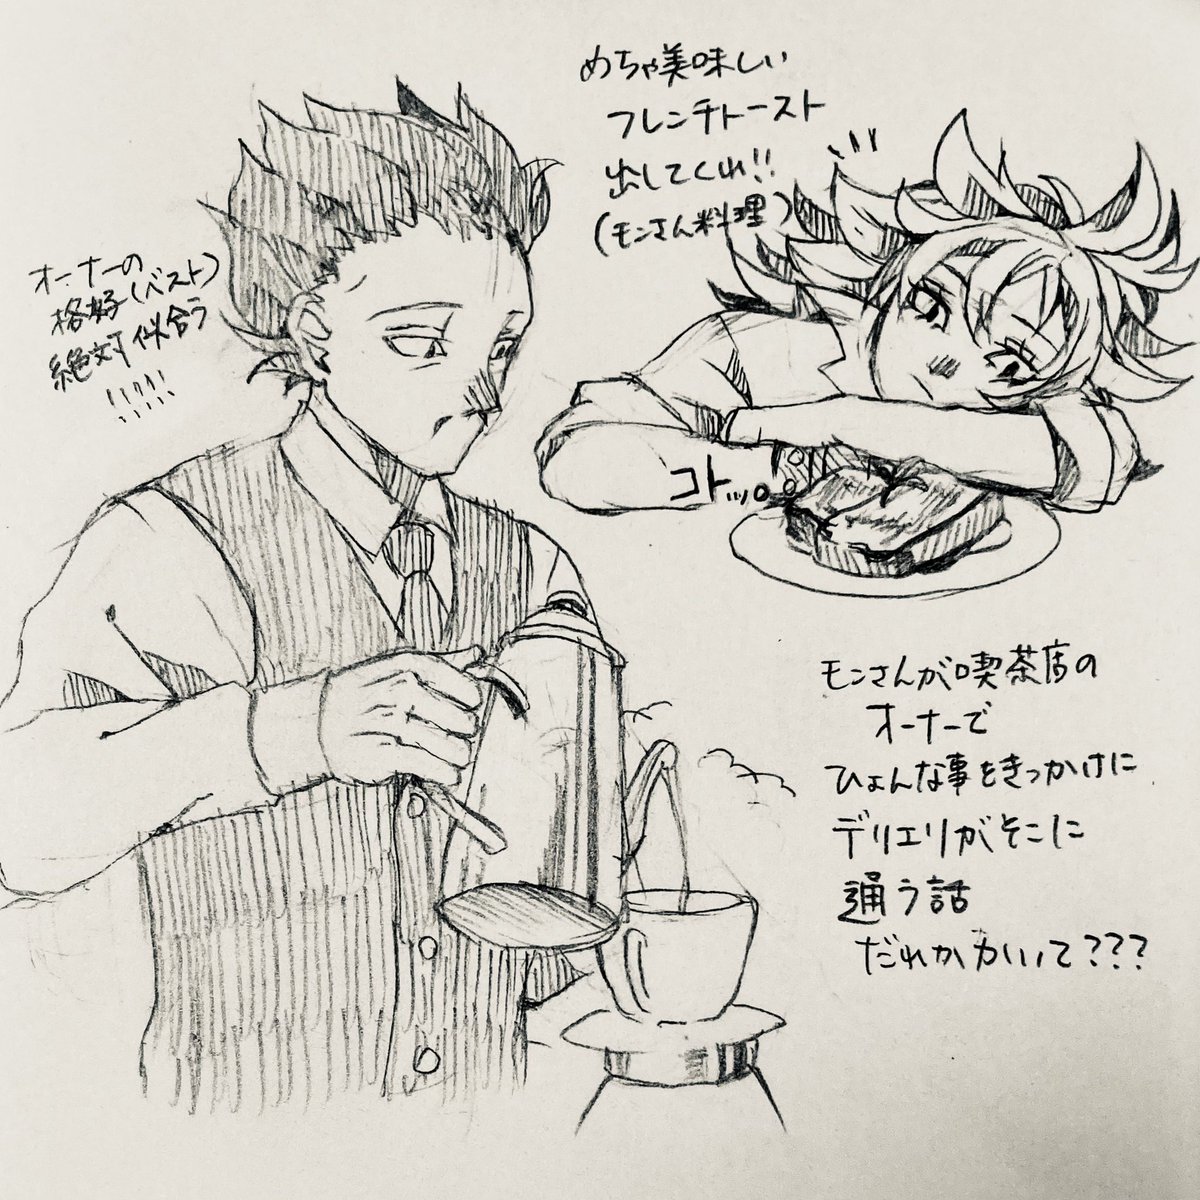 めちゃ美味しい
フレンチトースト
出してくれ!!
(モンさん料理)
オーナーの
格好(ベスト)
絶対似合う
!!!!!
コトッ。
モンさんが喫茶店の
オーナーで
ひょんな事をきっかけに
デリエリがそこに
通う話
だれかかいて???